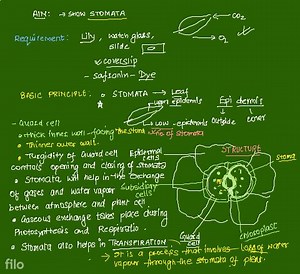 AIM: → SHOW STOMATA
CO₂
O₂
Requirement: Lily, watch glass,
slide
→ coverslip
- safranin - Dye
BASIC PRINCIPLE: STOMATA → Leaf
Upper epidermis
Epi dermis
Low - epidermis Outside cover
- Guard cell
• thick inner wall - facing the stoma
• Thinner outer wall
STRUCTURE
Stoma
• Turgidity of Guard cell Epidermal cells
controls opening and closing of stomata
• Stomata, will help in the exchange
of gases and water vapour
Subsidiary cells
between atmosphere and plant cell
• Gaseous exchange takes place during
Photosynthesis and Respiratio
Guard cell
chloroplast
• Stomata also helps in TRANSPIRATION
→ It is a process that involves loss of water
vapour through the stomata of plans.
filo